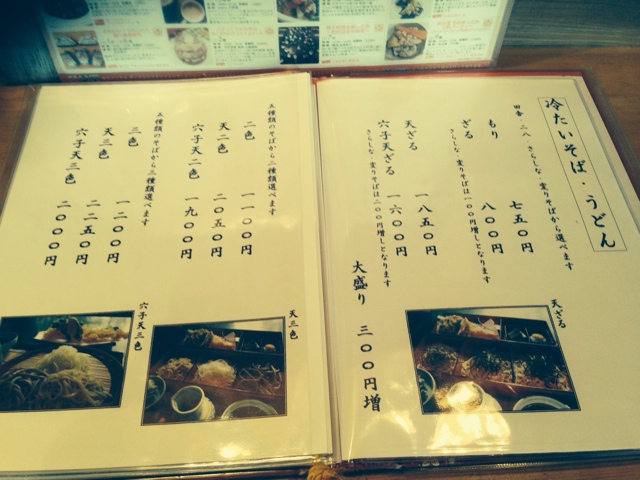 冷たいそば・うどん
田舎・二八・さらしな・変りそばから選べます
もり 七五〇円
ざる 八〇〇円
さらしな・変りそばは一〇〇円増しとなります
天ざる 一八五〇円
穴子天ざる 一六〇〇円
さらしな・変りそばは二〇〇円増しとなります
大盛り 三〇〇円増
天ざる
五種類のそばから二種類選べます
二色 一一〇〇円
天二色 二〇五〇円
穴子天二色 一九〇〇円
五種類のそばから三種類選べます
三色 一二〇〇円
天三色 二二五〇円
穴子天三色 二〇〇〇円
天三色
穴子天三色